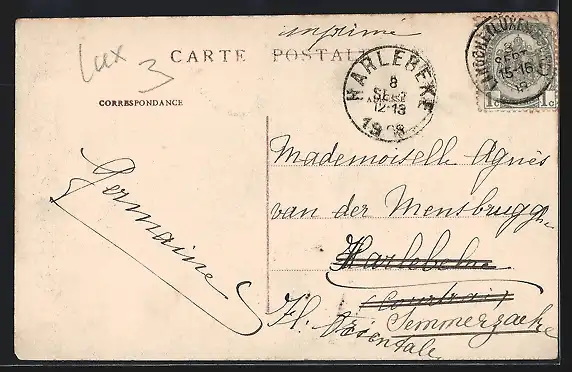 imprimé
Lux
3
CARTE POSTALE
CORRESPONDANCE
HARLEBEKE
8
SEPT
12-13
1908
SEPT
15-16
1c 1c
Mademoiselle Agnès
van der Mensbrugghe
Harlebeke
(Courtrai)
Semmerzaeke
Germaine